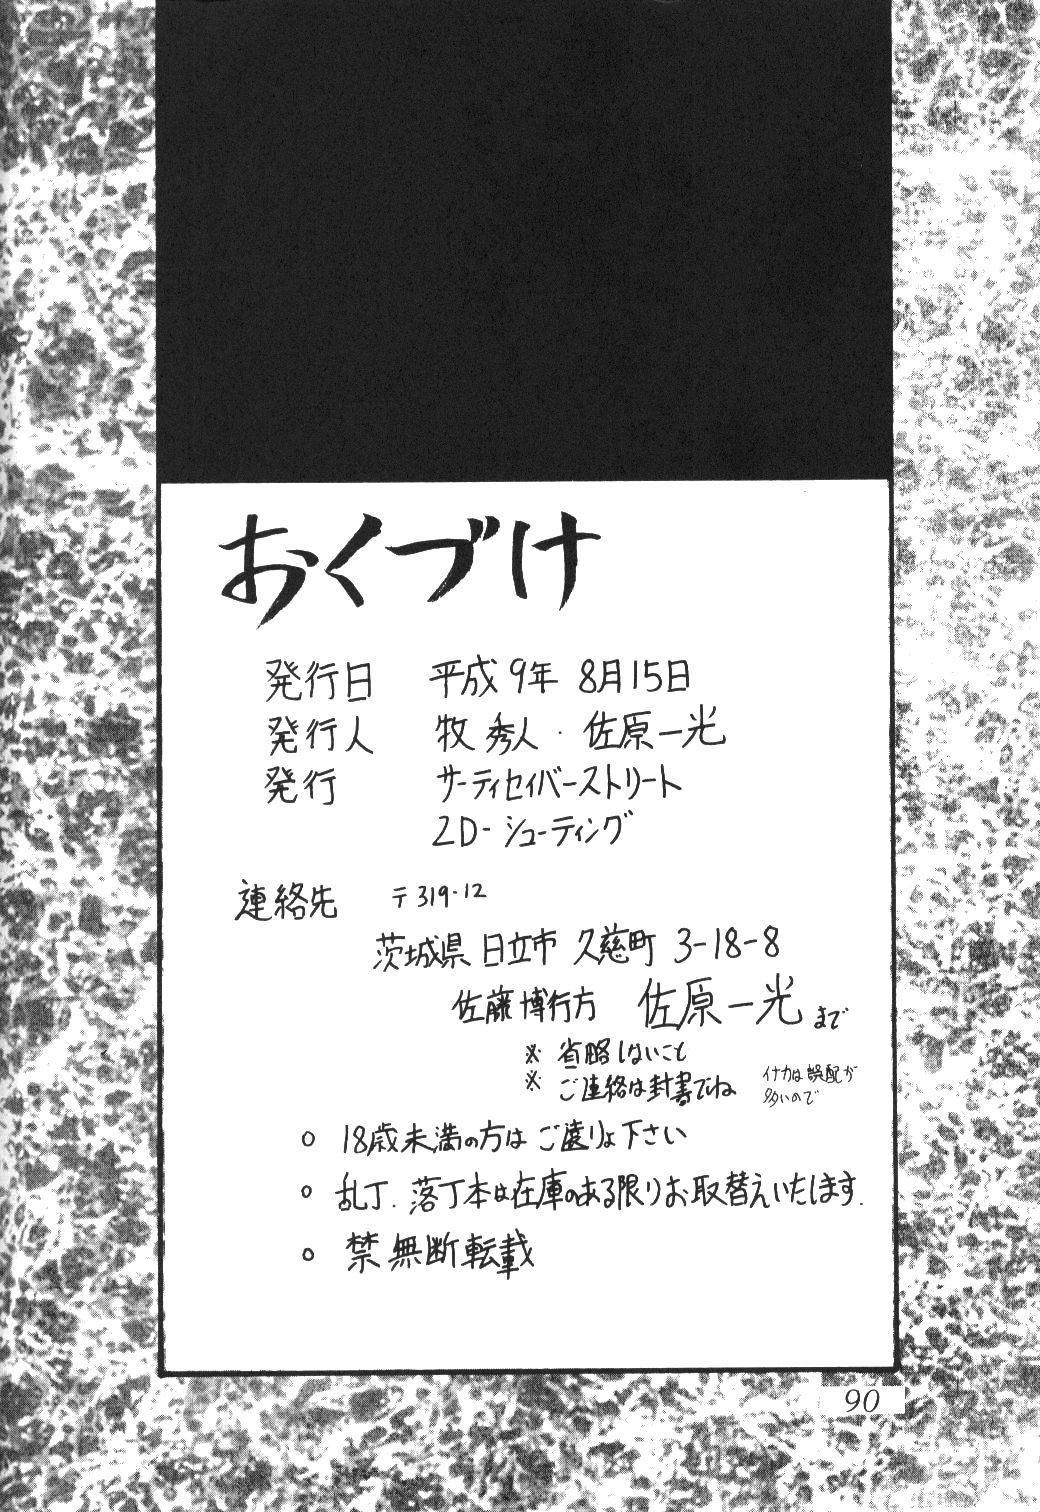 おくづけ
発行日 平成9年 8月15日
発行人 牧 秀人・佐原一光
発行 サーティセイバーストリート
2D-シューティング
連絡先 〒319-12
茨城県 日立市 久慈町 3-18-8
佐藤 博行方 佐原一光まで
※ 省略しないこと
※ ご連絡は封書でね イナカは誤配が
多いので
○ 18歳未満の方は ご遠りょ下さい
○ 乱丁.落丁本は在庫のある限りお取替えいたします.
○ 禁 無断転載
90